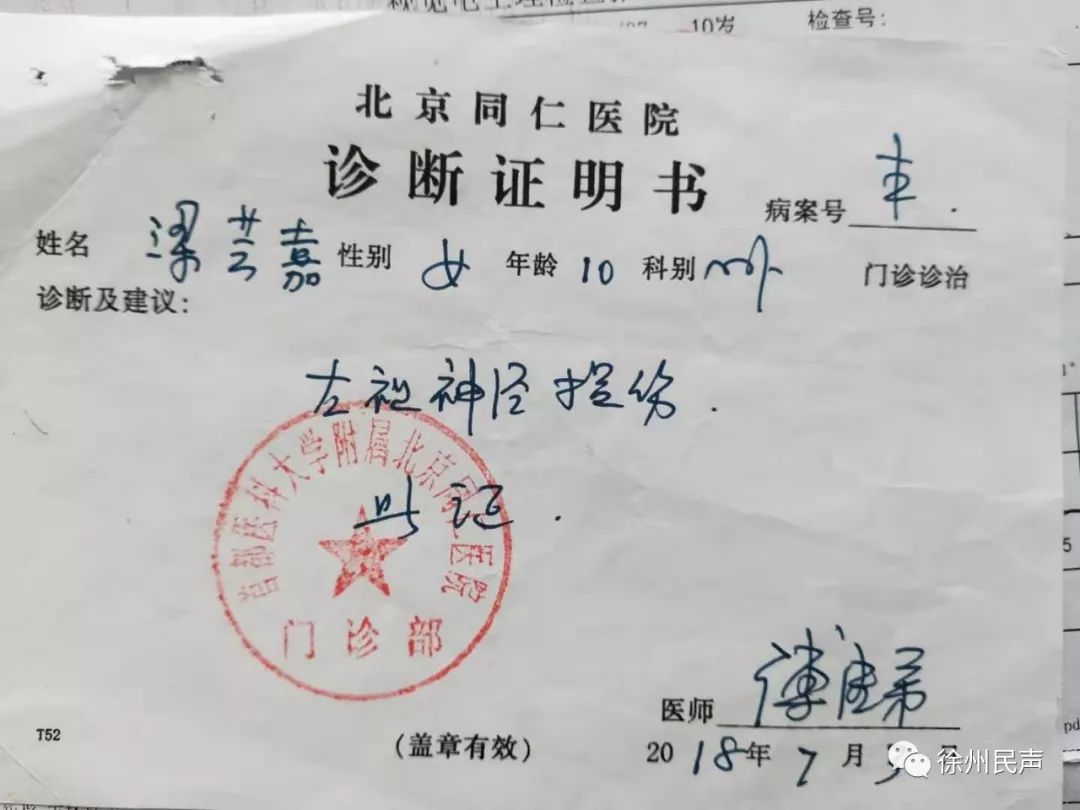 10岁
检查号:
北京同仁医院
诊断证明书
病案号
姓名 梁芸嘉 性别 女 年龄 10 科别 门诊诊治
诊断及建议:
左视神经损伤.
此证.
首都医科大学附属北京同仁医院
门诊部
医师
T52
(盖章有效)
2018年7月
徐州民声